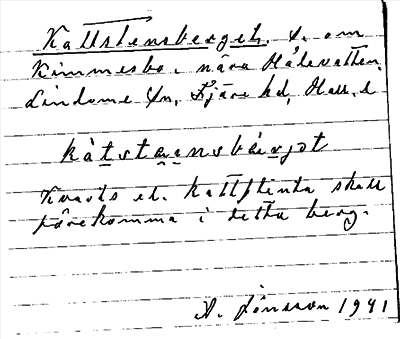 Kattstensberget, s. om
Kimmesbo, nära Hålevatten.
Lindome sn, Fjäre hd, Hall. l
katstæ̱nsbærjət
Kvarts el. kattflinta skall
förekomma i detta berg.
A. Jönsson 1941